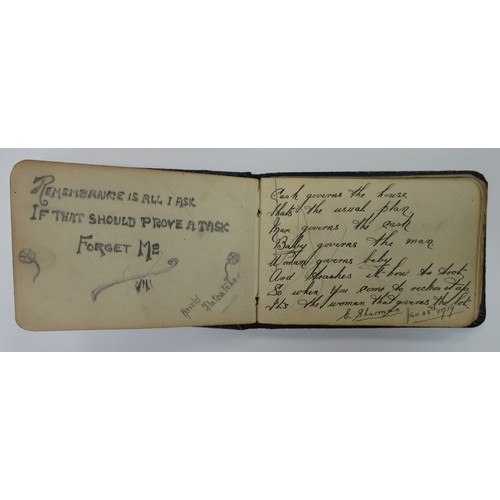 REMEMBRANCE IS ALL I ASK
IF THAT SHOULD PROVE A TASK
FORGET ME
Cash governs the house
thats the usual plan
Man governs the cash
Baby governs the man
Woman governs baby
And teaches it how to
So when you come to reckon it up
Its the woman that governs the lot
E. Sharman Jan 25th 1919